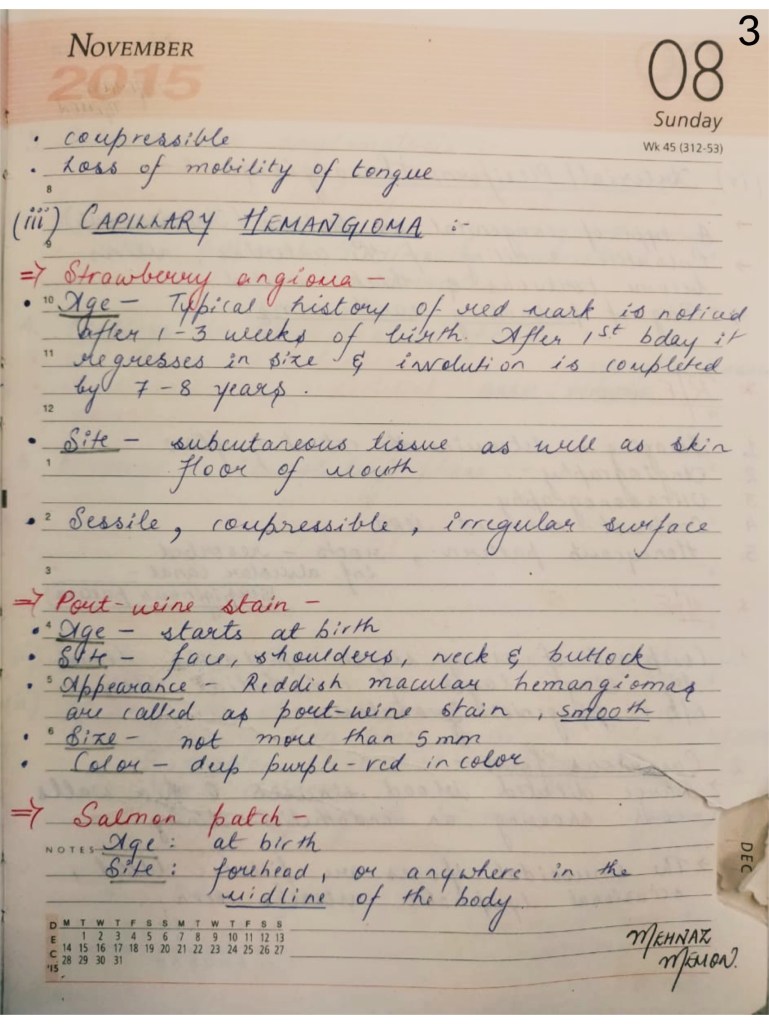 3
NOVEMBER
2015
08
Sunday
Wk 45 (312-53)
• compressible
• Loss of mobility of tongue
8
(iii) CAPILLARY HEMANGIOMA :-
9
⇒ Strawberry angioma -
• 10 Age - Typical history of red mark is noticed
after 1-3 weeks of birth. After 1st bday it
11 regresses in size & involution is completed
by 7-8 years.
12
• Site - subcutaneous tissue as well as skin
1 floor of mouth
• 2 Sessile, compressible, irregular surface
3
⇒ Port-wine stain -
• 4 Age - starts at birth
• Site - face, shoulders, neck & buttock
• 5 Appearance - Reddish macular hemangiomas
are called as port-wine stain, smooth
• 6 Size - not more than 5mm
• Color - deep purple-red in color
⇒ Salmon patch -
NOTES Age : at birth
Site : forehead, or anywhere in the
midline of the body.
DEC
DEC '15
M T W T F S S M T W T F S S
1 2 3 4 5 6 7 8 9 10 11 12 13
14 15 16 17 18 19 20 21 22 23 24 25 26 27
28 29 30 31
MEHNAZ
MEMON.